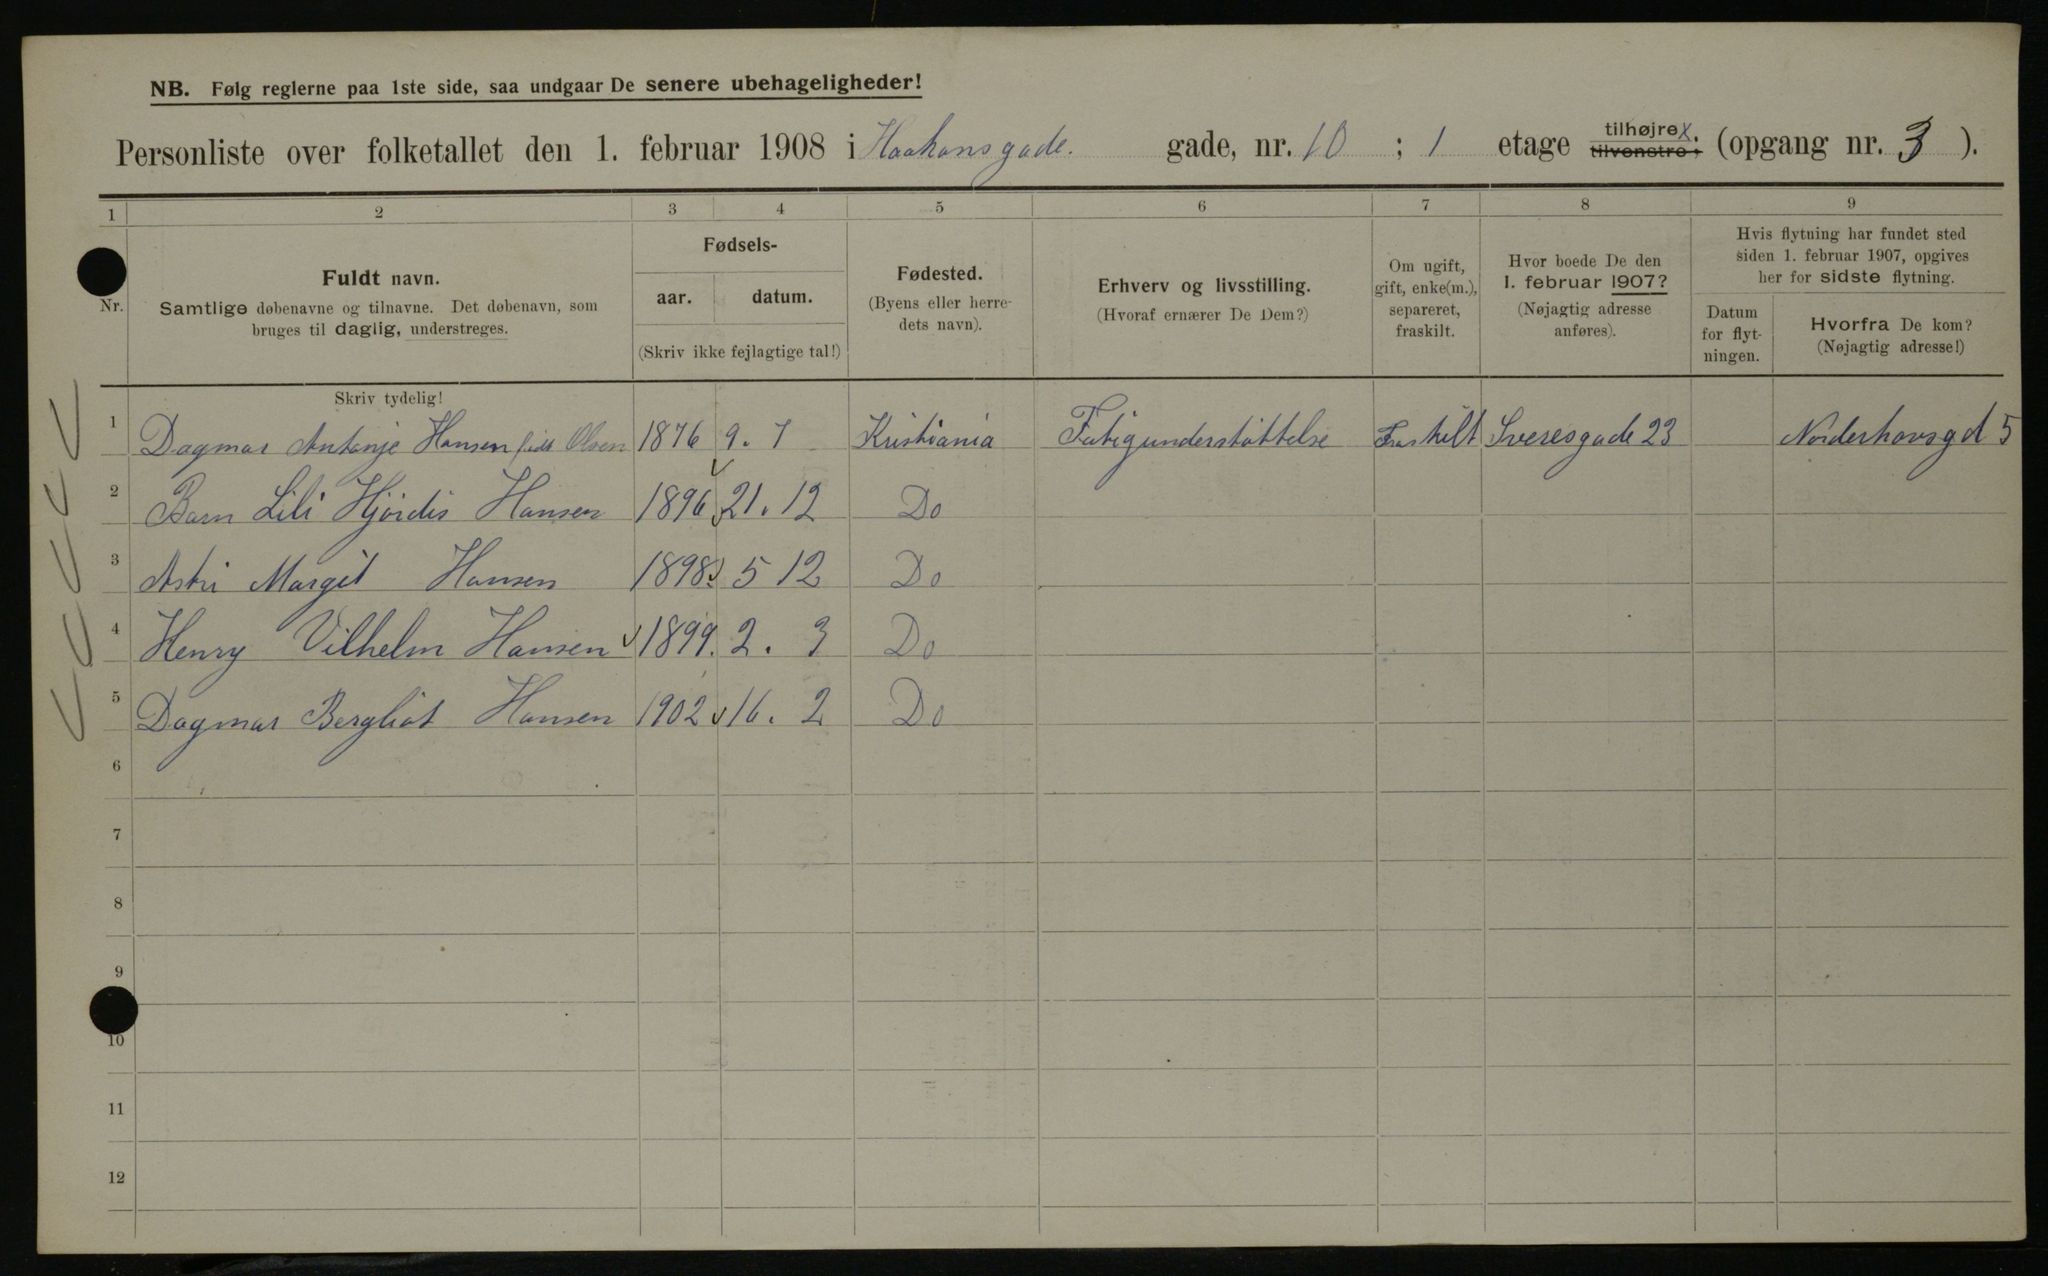 NB. Følg reglerne paa 1ste side, saa undgaar De senere ubehageligheder!
Personliste over folketallet den 1. februar 1908 i Haakonsgade. gade, nr. 10 ; 1 etage tilhøjre x; tilvenstre; (opgang nr. 3 ).
1 2 3 4 5 6 7 8 9
Nr.
Fuldt navn.
Samtlige døbenavne og tilnavne. Det døbenavn, som
bruges til daglig, understreges.
Fødsels-
aar. datum.
(Skriv ikke fejlagtige tal!)
Fødested.
(Byens eller herre-
dets navn).
Erhverv og livsstilling.
(Hvoraf ernærer De Dem?)
Om ugift,
gift, enke(m.),
separeret,
fraskilt.
Hvor boede De den
1. februar 1907?
(Nøjagtig adresse
anføres).
Hvis flytning har fundet sted
siden 1. februar 1907, opgives
her for sidste flytning.
Datum
for flyt-
ningen.
Hvorfra De kom?
(Nøjagtig adresse!)
Skriv tydelig!
1 Dagmar Antonje Hansen født Olsen 1876 9. 7 Kristiania Fatigunderstøttelse Fraskilt Sveresgade 23 Norderhovsgd 5
2 Barn Lili Hjördis Hansen 1896 21. 12 Do
3 Astri Margit Hansen 1898. 5 12 Do
4 Henry Vilhelm Hansen 1899. 2. 3 Do
5 Dagmar Bergliot Hansen 1902 16. 2 Do
6
7
8
9
10
11
12